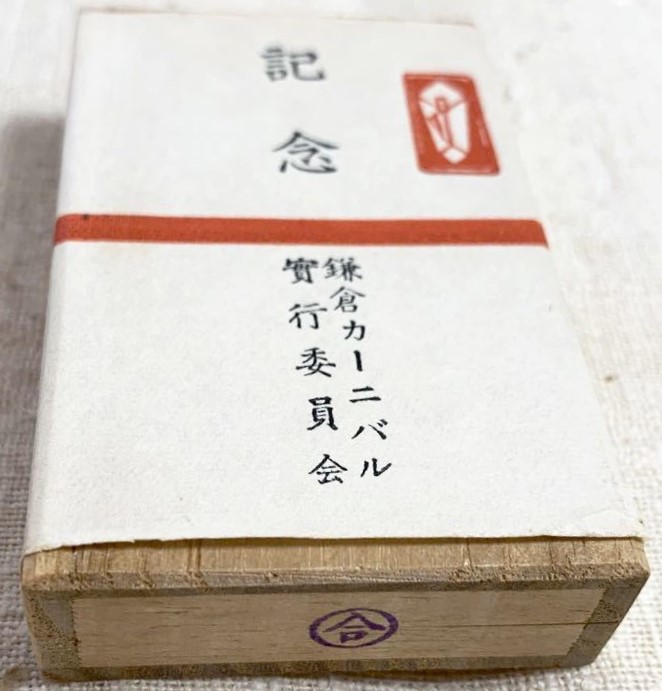 記念
鎌倉カーニバル
實行委員会
合